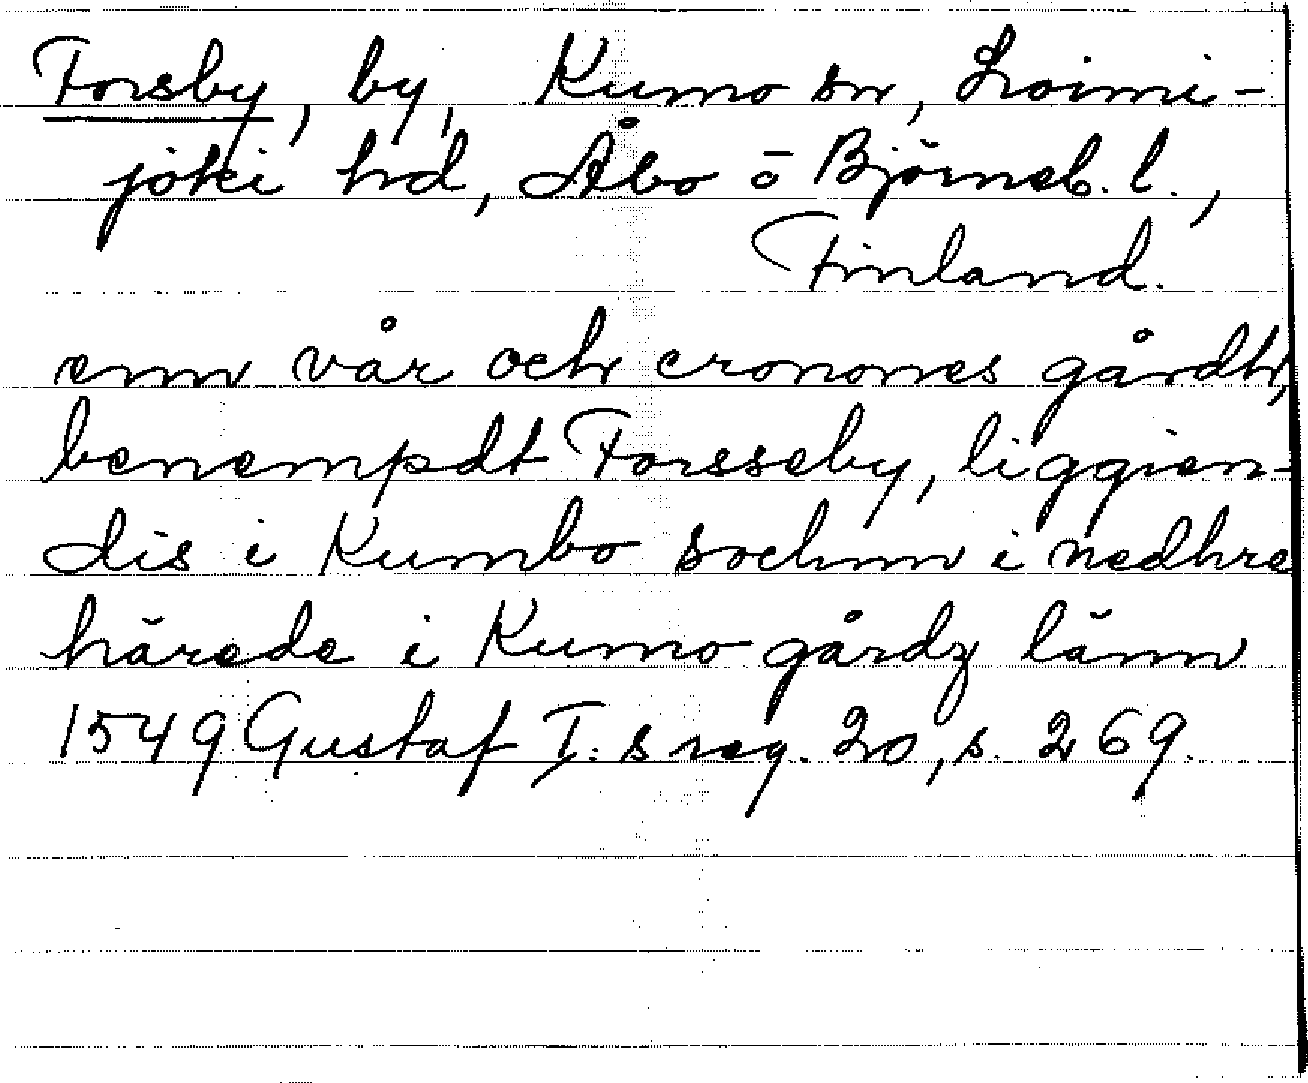 Forsby, by, Kumo sn, Loimi-
joki hd, Åbo o Björneb. l.,
Finland.
enn vår och cronones gårdh,
benempdt Forsseby, liggien-
dis i Kumbo sochnn i nedhre
härede i Kumo gårdz länn
1549 Gustaf I:s reg. 20, s. 269.